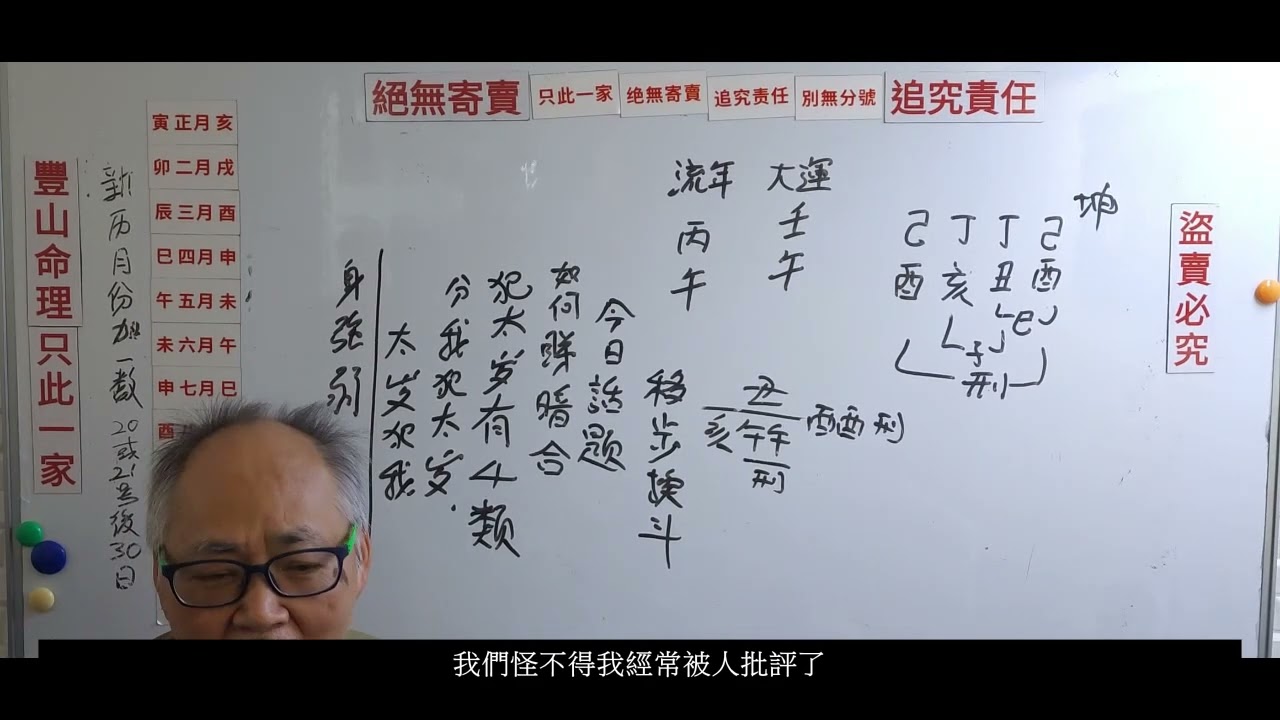 絕無寄賣
只此一家
绝無寄賣
追究责任
別無分號
追究責任
豐山命理
只此一家
新历月份加一数 20或21号後30日
寅正月亥
卯二月戌
辰三月酉
巳四月申
午五月未
未六月午
申七月巳
酉
盜賣必究
坤
己丁丁己
酉亥丑酉
巳
子
刑
大運
壬午
流年
丙午
丑
亥午午
刑
酉酉刑
移步换斗
今日話题
如何睇暗合
犯太岁有4類
分我犯太岁.
太岁犯我
身强弱
我們怪不得我經常被人批評了